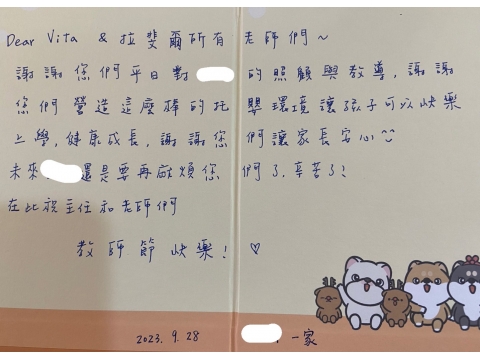 Dear Vita & 拉斐爾所有老師們~
謝謝您們平日對 的照顧與教導,謝謝
您們營造這麼棒的托嬰環境讓孩子可以快樂
上學,健康成長,謝謝您們讓家長安心
未來 還是要再麻煩您們了,辛苦了!
在此祝主任和老師們
教師節快樂! ♡
2023. 9. 28 一家